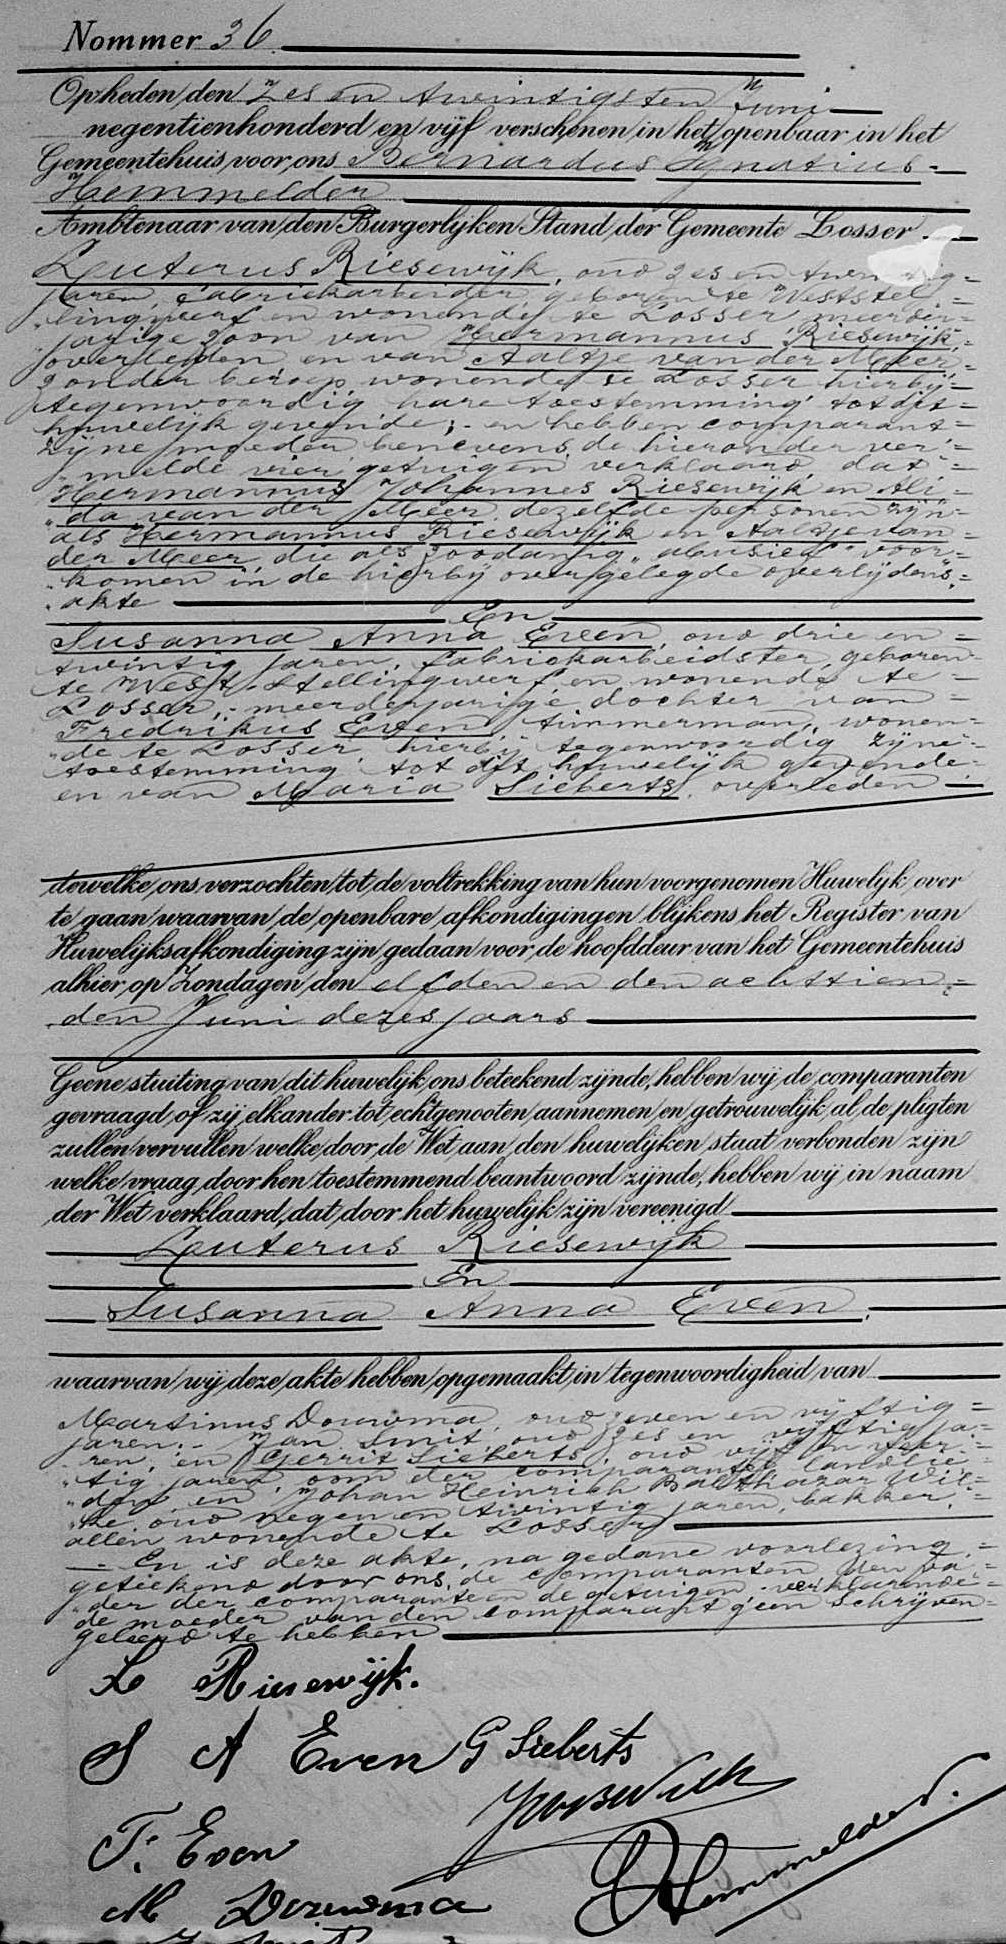 Nommer 36
Op heden den Zes en twintigsten Juni
negentienhonderd en vijf verschenen in het openbaar in het
Gemeentehuis voor ons Bernardus Ignatius
Hemmelder
Ambtenaar van den Burgerlijken Stand der Gemeente Losser
Leuterus Riesewijk, oud zes en twintig
jaren, fabriekarbeider, geboren te Weststel
lingwerf en wonende te Losser meerder
jarige zoon van Hermannus Riesewijk,
overleden en van Aaltje van der Meer,
zonder beroep wonende te Losser hierbij
tegenwoordig hare toestemming tot dit
huwelijk gevende; en hebben comparant
zijne moeder benevens de hieronder ver
melde vier getuigen verklaard dat
Hermannus Johannes Riesewijk en Ali
da van der Meer dezelfde personen zijn
als Hermannus Riesewijk en Aaltje van
der Meer die als zoodanig abusief voor
komen in de hierbij overgelegde overlijdens
akte
En
Susanna Anna Even, oud drie en
twintig jaren, fabriekarbeidster, geboren
te West-Stellingwerf en wonende te
Losser, meerderjarige dochter van
Fredrikus Even, timmerman, wonen
de te Losser hierbij tegenwoordig zijne
toestemming tot dit huwelijk gevende
en van Maria Sieberts, overleden
dewelke ons verzochten tot de voltrekking van hun voorgenomen Huwelijk over
te gaan waarvan de openbare afkondigingen blijkens het Register van
Huwelijksafkondiging zijn gedaan voor de hoofddeur van het Gemeentehuis
alhier op Zondagen den elfden en den achttien
den Juni dezes jaars
Geene stuiting van dit huwelijk ons beteekend zijnde, hebben wij de comparanten
gevraagd of zij elkander tot echtgenooten aannemen en getrouwelijk al de pligten
zullen vervullen welke door de Wet aan den huwelijken staat verbonden zijn
welke vraag door hen toestemmend beantwoord zijnde, hebben wij in naam
der Wet verklaard, dat door het huwelijk zijn vereenigd
Leuterus Riesewijk
En
Susanna Anna Even,
waarvan wij deze akte hebben opgemaakt in tegenwoordigheid van
Martinus Douwma, oud zeven en vijftig
jaren; Jan Smit, oud zes en vijftig ja
ren, en Gerrit Sieberts, oud vijf en veer
tig jaren, oom der comparante, landlie
den, en Johan Heinrich Balthazar Wil
ke oud negen en twintig jaren, bakker,
allen wonende te Losser
En is deze akte, na gedane voorlezing
geteekend door ons, de comparanten, den va
der der comparante en de getuigen verklarende
de moeder van den comparant geen schrijven
geleerd te hebben
L Riesewijk.
S A Even G Sieberts
JHB Wilke
F. Even
Hemmelder.
M Douwma
J Smit